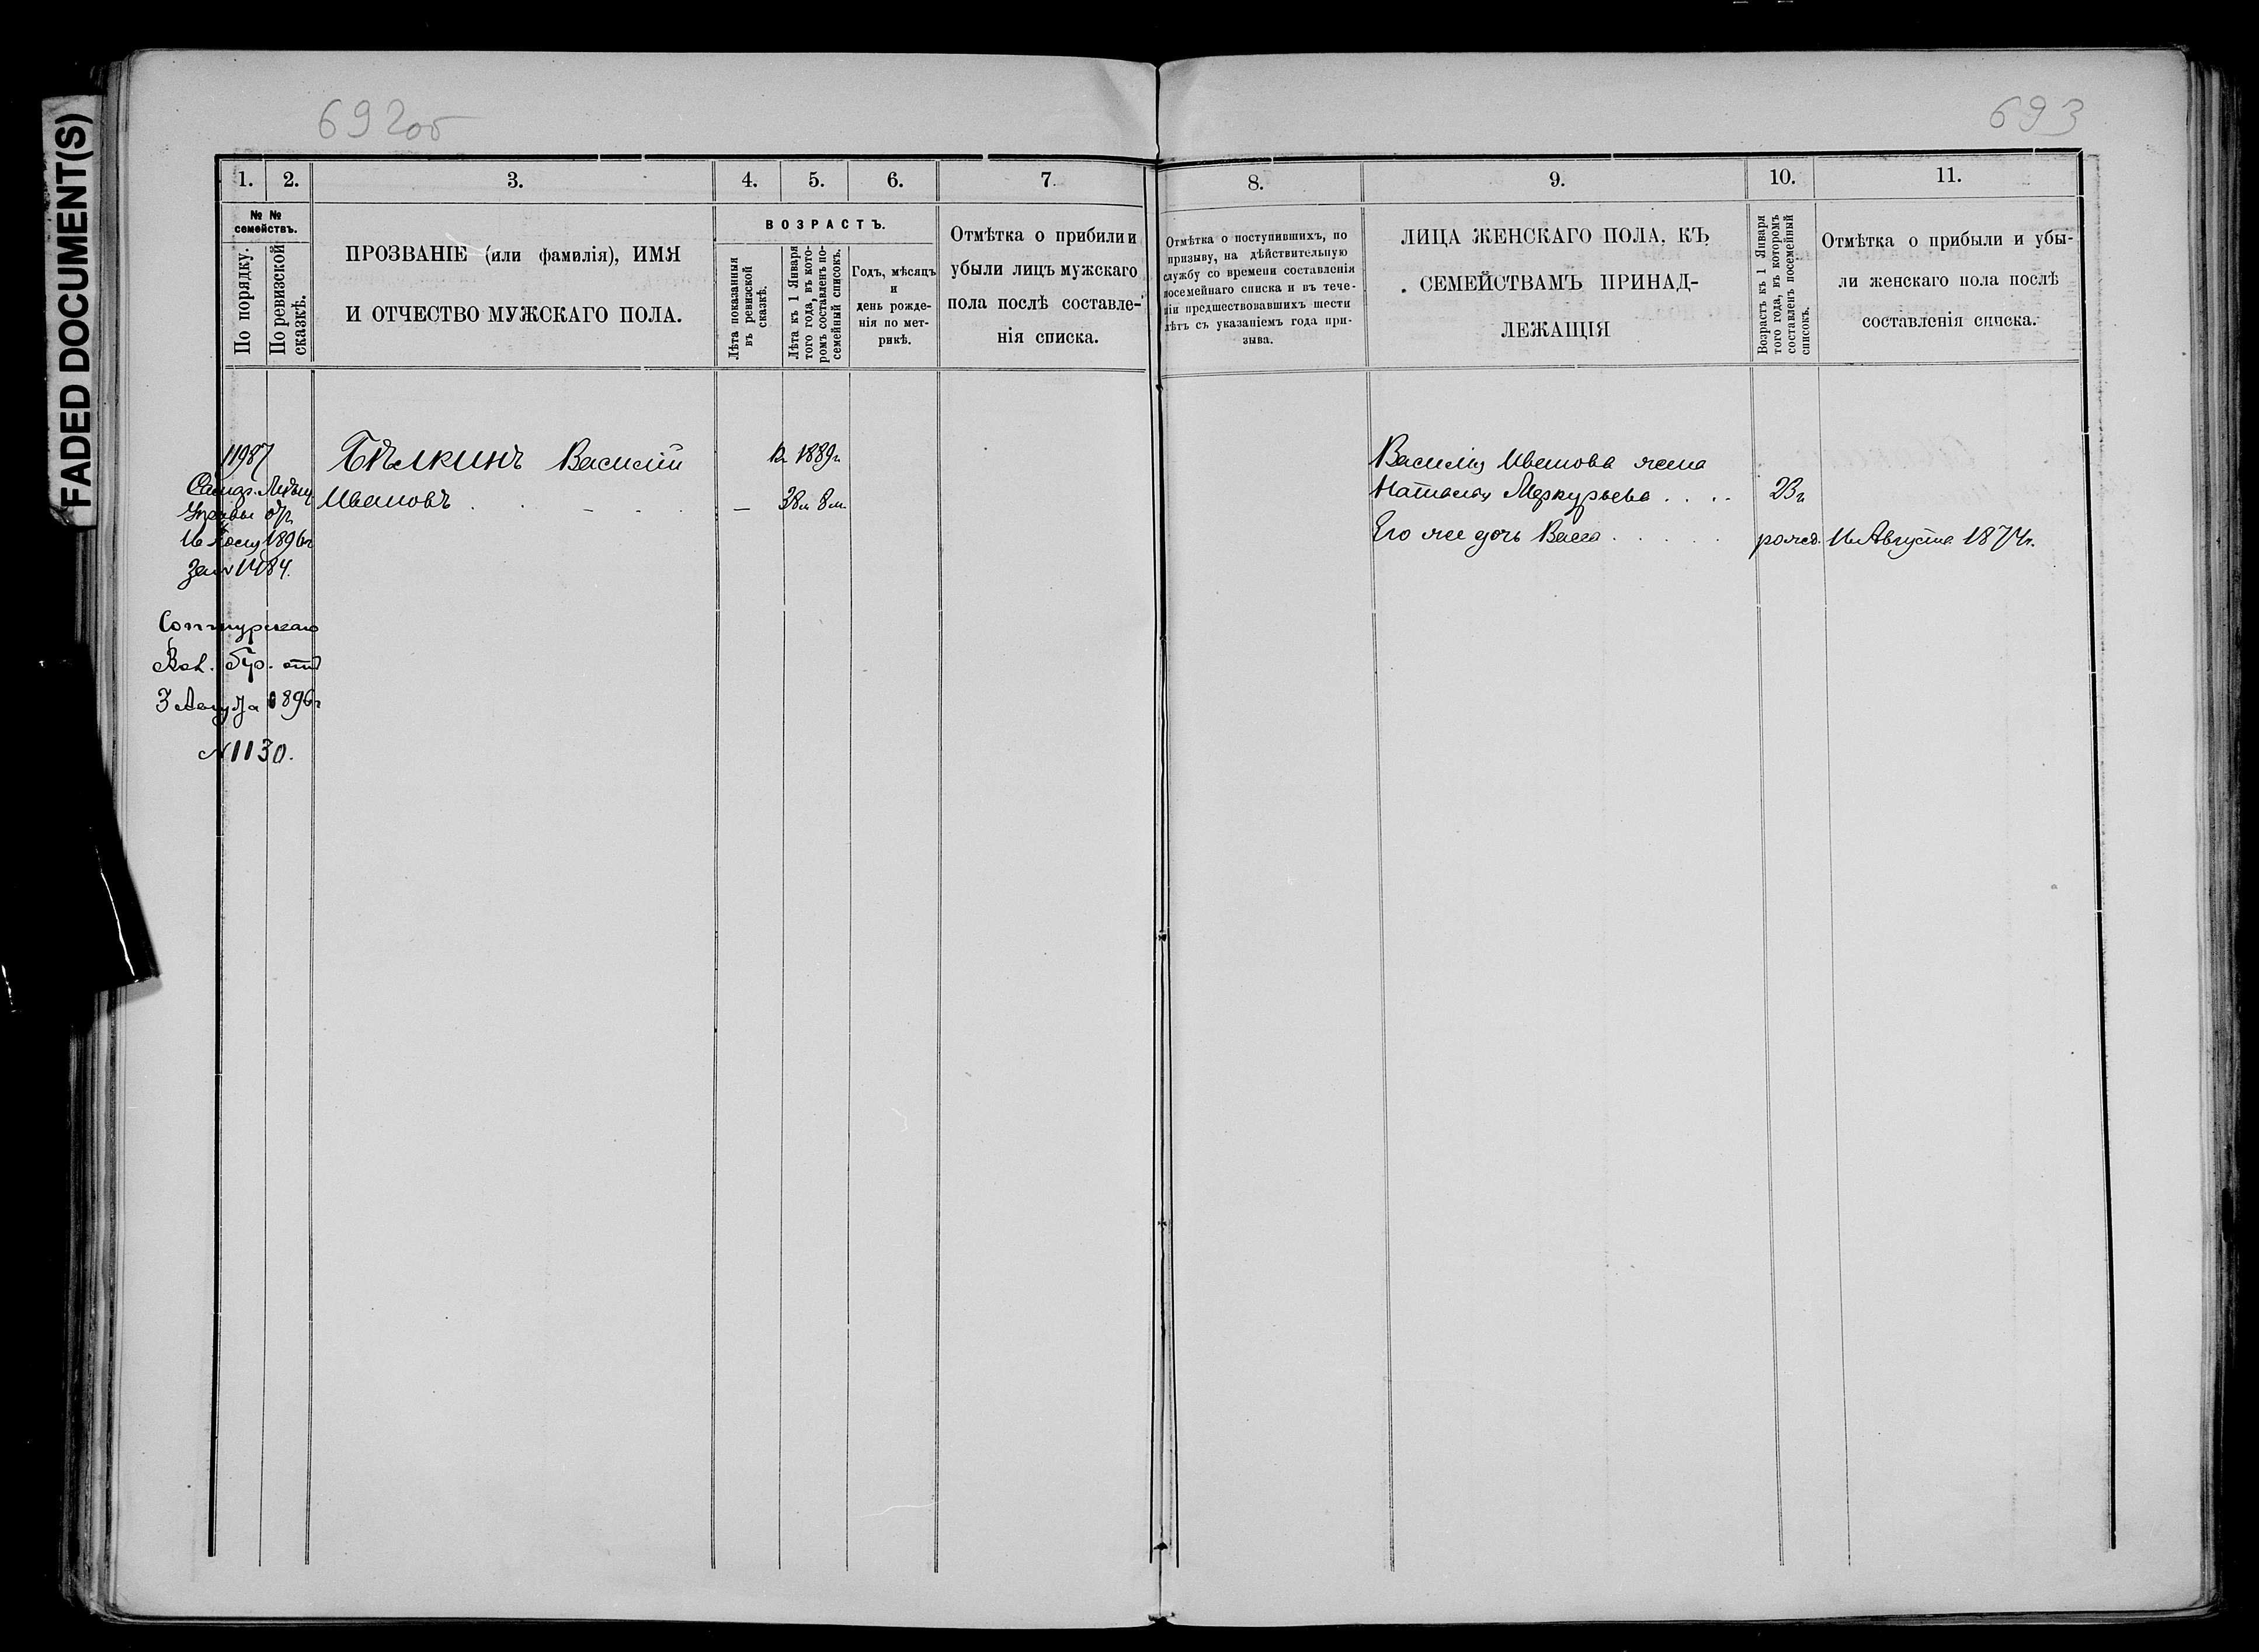 FADED DOCUMENT(S)
692об
693
1. 2. 3. 4. 5. 6. 7. 8. 9. 10. 11.
№ №
семействъ.
По порядку.
По ревизской
сказкѣ.
ПРОЗВАНІЕ (или фамилія), ИМЯ
И ОТЧЕСТВО МУЖСКАГО ПОЛА.
ВОЗРАСТЪ.
Лѣта показанныя
въ ревизской
сказкѣ.
Лѣта къ 1 Января
того года, въ кото-
ромъ составленъ по-
семейный списокъ.
Годъ, мѣсяцъ
и
день рожде-
нія по мет-
рикѣ.
Отмѣтка о прибыли и
убыли лицъ мужскаго
пола послѣ составле-
нія списка.
Отмѣтка о поступившихъ, по
призыву, на дѣйствительную
службу со времени составленія
посемейнаго списка и въ тече-
ніи предшествовавшихъ шести
лѣтъ съ указаніемъ года при-
зыва.
ЛИЦА ЖЕНСКАГО ПОЛА, КЪ
СЕМЕЙСТВАМЪ ПРИНАД-
ЛЕЖАЩІЯ
Возрастъ къ 1 Января
того года, въ которомъ
составленъ посемейный
списокъ.
Отмѣтка о прибыли и убы-
ли женскаго пола послѣ
составленія списка.
11987
Бѣлкинъ Василій
1889г
Ивановъ . . - . . — 28л 8м.
1896г
1484.
3 1896г
№1130.
Василія Иванова жена
Наталья Меркурьева . . . . 23г
Его же дочь Васса . . . . . рожд. 16 Августа 1874г.